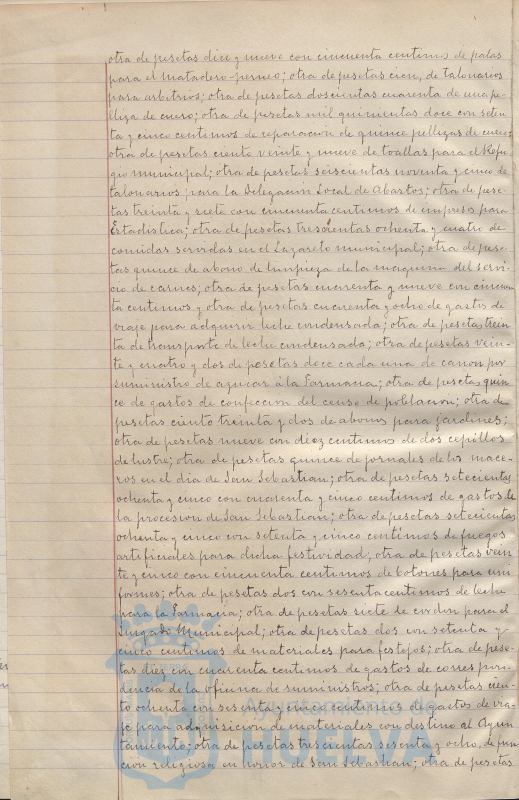 otra de pesetas diez y nueve con cincuenta centimos de palas
para el matadero-perneo; otra de pesetas cien, de talonarios
para arbitrios; otra de pesetas doscientas cuarenta de una pe-
lliza de cuero; otra de pesetas mil quinientas doce con seten
ta y cinco centimos de reparacion de quince pellizas de cuero;
otra de pesetas ciento veinte y nueve de toallas para el Refu
gio municipal; otra de pesetas seiscientas noventa y cinco de
talonarios para la Delegacion Local de Abastos; otra de pese-
tas treinta y siete con cincuenta centimos de impresos para
Estadistica; otra de pesetas trescientas ochenta y cuatro de
comidas servidas en el Lazareto municipal; otra de pese-
tas quince de abono de limpieza de la maquina del servi-
cio de carnes; otra de pesetas cuarenta y nueve con cincuen
ta centimos y otra de pesetas cuarenta y ocho de gastos de
viaje para adquirir leche condensada; otra de pesetas trein
ta de transporte de leche condensada; otra de pesetas vein-
te y cuatro y dos de pesetas doce cada una de canon por
suministro de azucar á la Farmacia; otra de pesetas quin
ce de gastos de confeccion del censo de poblacion; otra de
pesetas ciento treinta y dos de abonos para jardines;
otra de pesetas nueve con diez centimos de dos cepillos
de lustre; otra de pesetas quince de jornales de los mace-
ros en el dia de San Sebastian; otra de pesetas setecientas
ochenta y cinco con cincuenta y cinco centimos de gastos de
la procesion de San Sebastian; otra de pesetas setecientas
ochenta y cinco con setenta y cinco centimos de fuegos
artificiales para dicha festividad; otra de pesetas vein
te y cinco con cincuenta centimos de botones para uni
formes; otra de pesetas dos con sesenta centimos de leche
para la Farmacia; otra de pesetas siete de cordon para el
Juzgado Municipal; otra de pesetas dos con setenta y
cinco centimos de materiales para festejos; otra de pese-
tas diez con cincuenta centimos de gastos de correspon-
dencia de la oficina de suministros; otra de pesetas cien-
to ochenta con sesenta y cinco centimos de gastos de via-
je para adquisicion de materiales con destino al Ayun
tamiento; otra de pesetas trescientas sesenta y ocho, de fun
cion religiosa en honor de San Sebastian; otra de pesetas
HUELVA